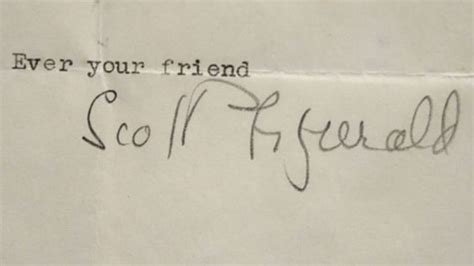 Ever your friend
Scott Fitzgerald